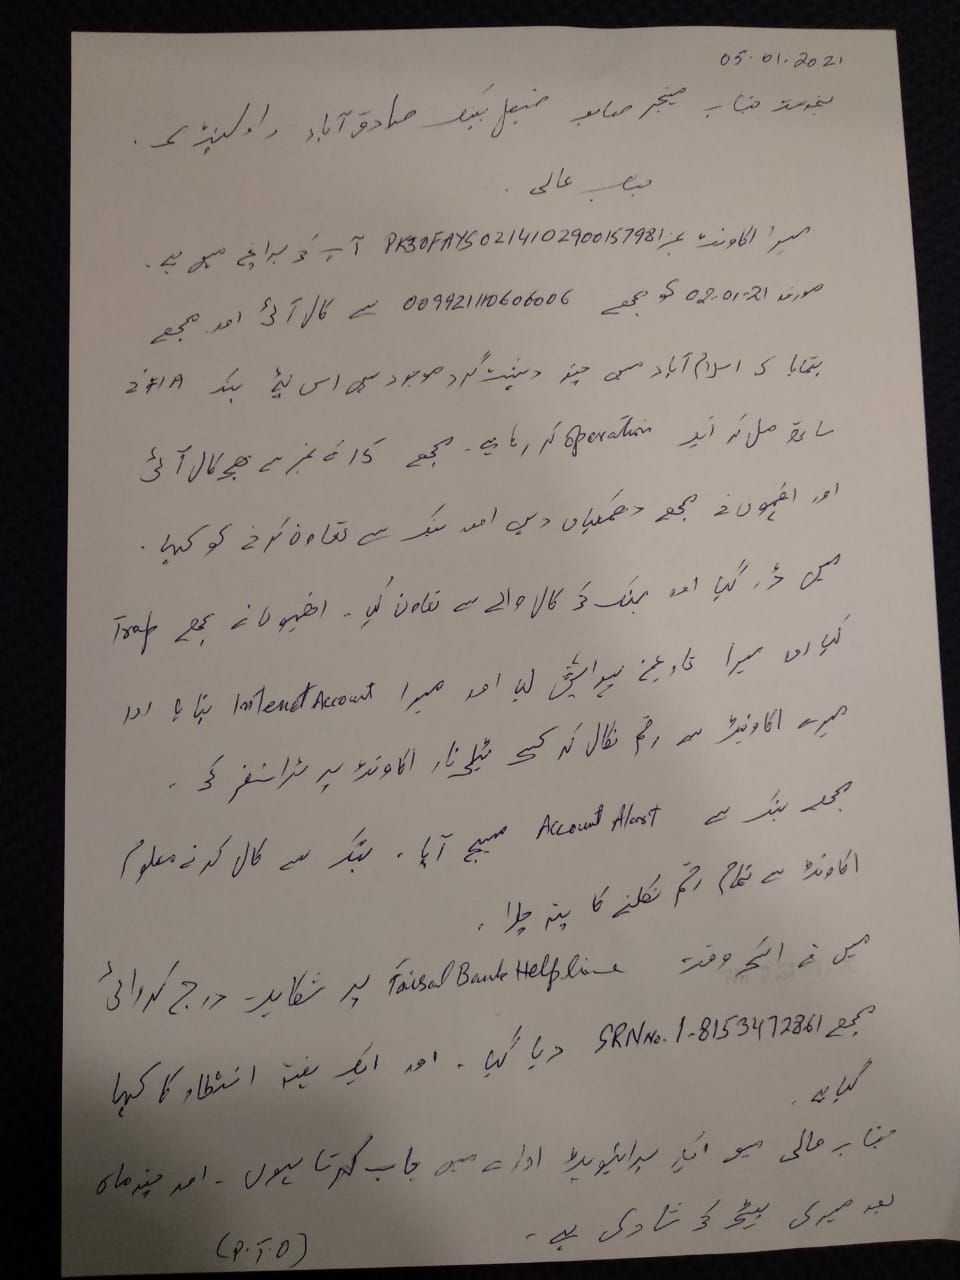 05.01.2021
بخدمت جناب مینجر صاحب فیصل بینک صادق آباد راولپنڈی۔
جناب عالی۔
میرا اکاونٹ نمبر PK30FAYS0214102900157981 آپ کی برانچ میں ہے۔
مورخہ 02-01-21 کو مجھے 009921110606006 سے کال آئی اور مجھے
بتایا کہ اسلام آباد میں چند دہشت گرد موجود ہیں اس لیے بینک FIA کے
ساتھ مل کر ایک operation کر رہا ہے۔ مجھے 15 کے نمبر سے بھی کال آئی
اور انہوں نے مجھے دھمکیاں دیں اور بینک سے تعاون کرنے کو کہا۔
میں ڈر گیا اور بینک کی کال والے سے تعاون کیا۔ انہوں نے مجھے Trap
کیا اور میرا لیا اور میرا Internet Account بنایا اور
میرے اکاونٹ سے رقم نکال کر کسی ٹیلی نار اکاونٹ پر ٹرانسفر کی۔
مجھے بینک سے Account Alert میسج آیا۔ بینک سے کال کرنے معلوم
اکاونٹ سے تمام رقم نکلنے کا پتہ چلا۔
میں نے اسی وقت Faisal Bank Helpline پر شکایت درج کروائی
مجھے SRN No. 1-8153472861 دیا گیا۔ اور ایک ہفتہ انتظار کا کہا
گیا ہے۔
جناب عالی میں ایک پرائیویٹ ادارے میں جاب کرتا ہوں۔ اور چند ماہ
بعد میری بیٹی کی شادی ہے۔
(P.T.O)